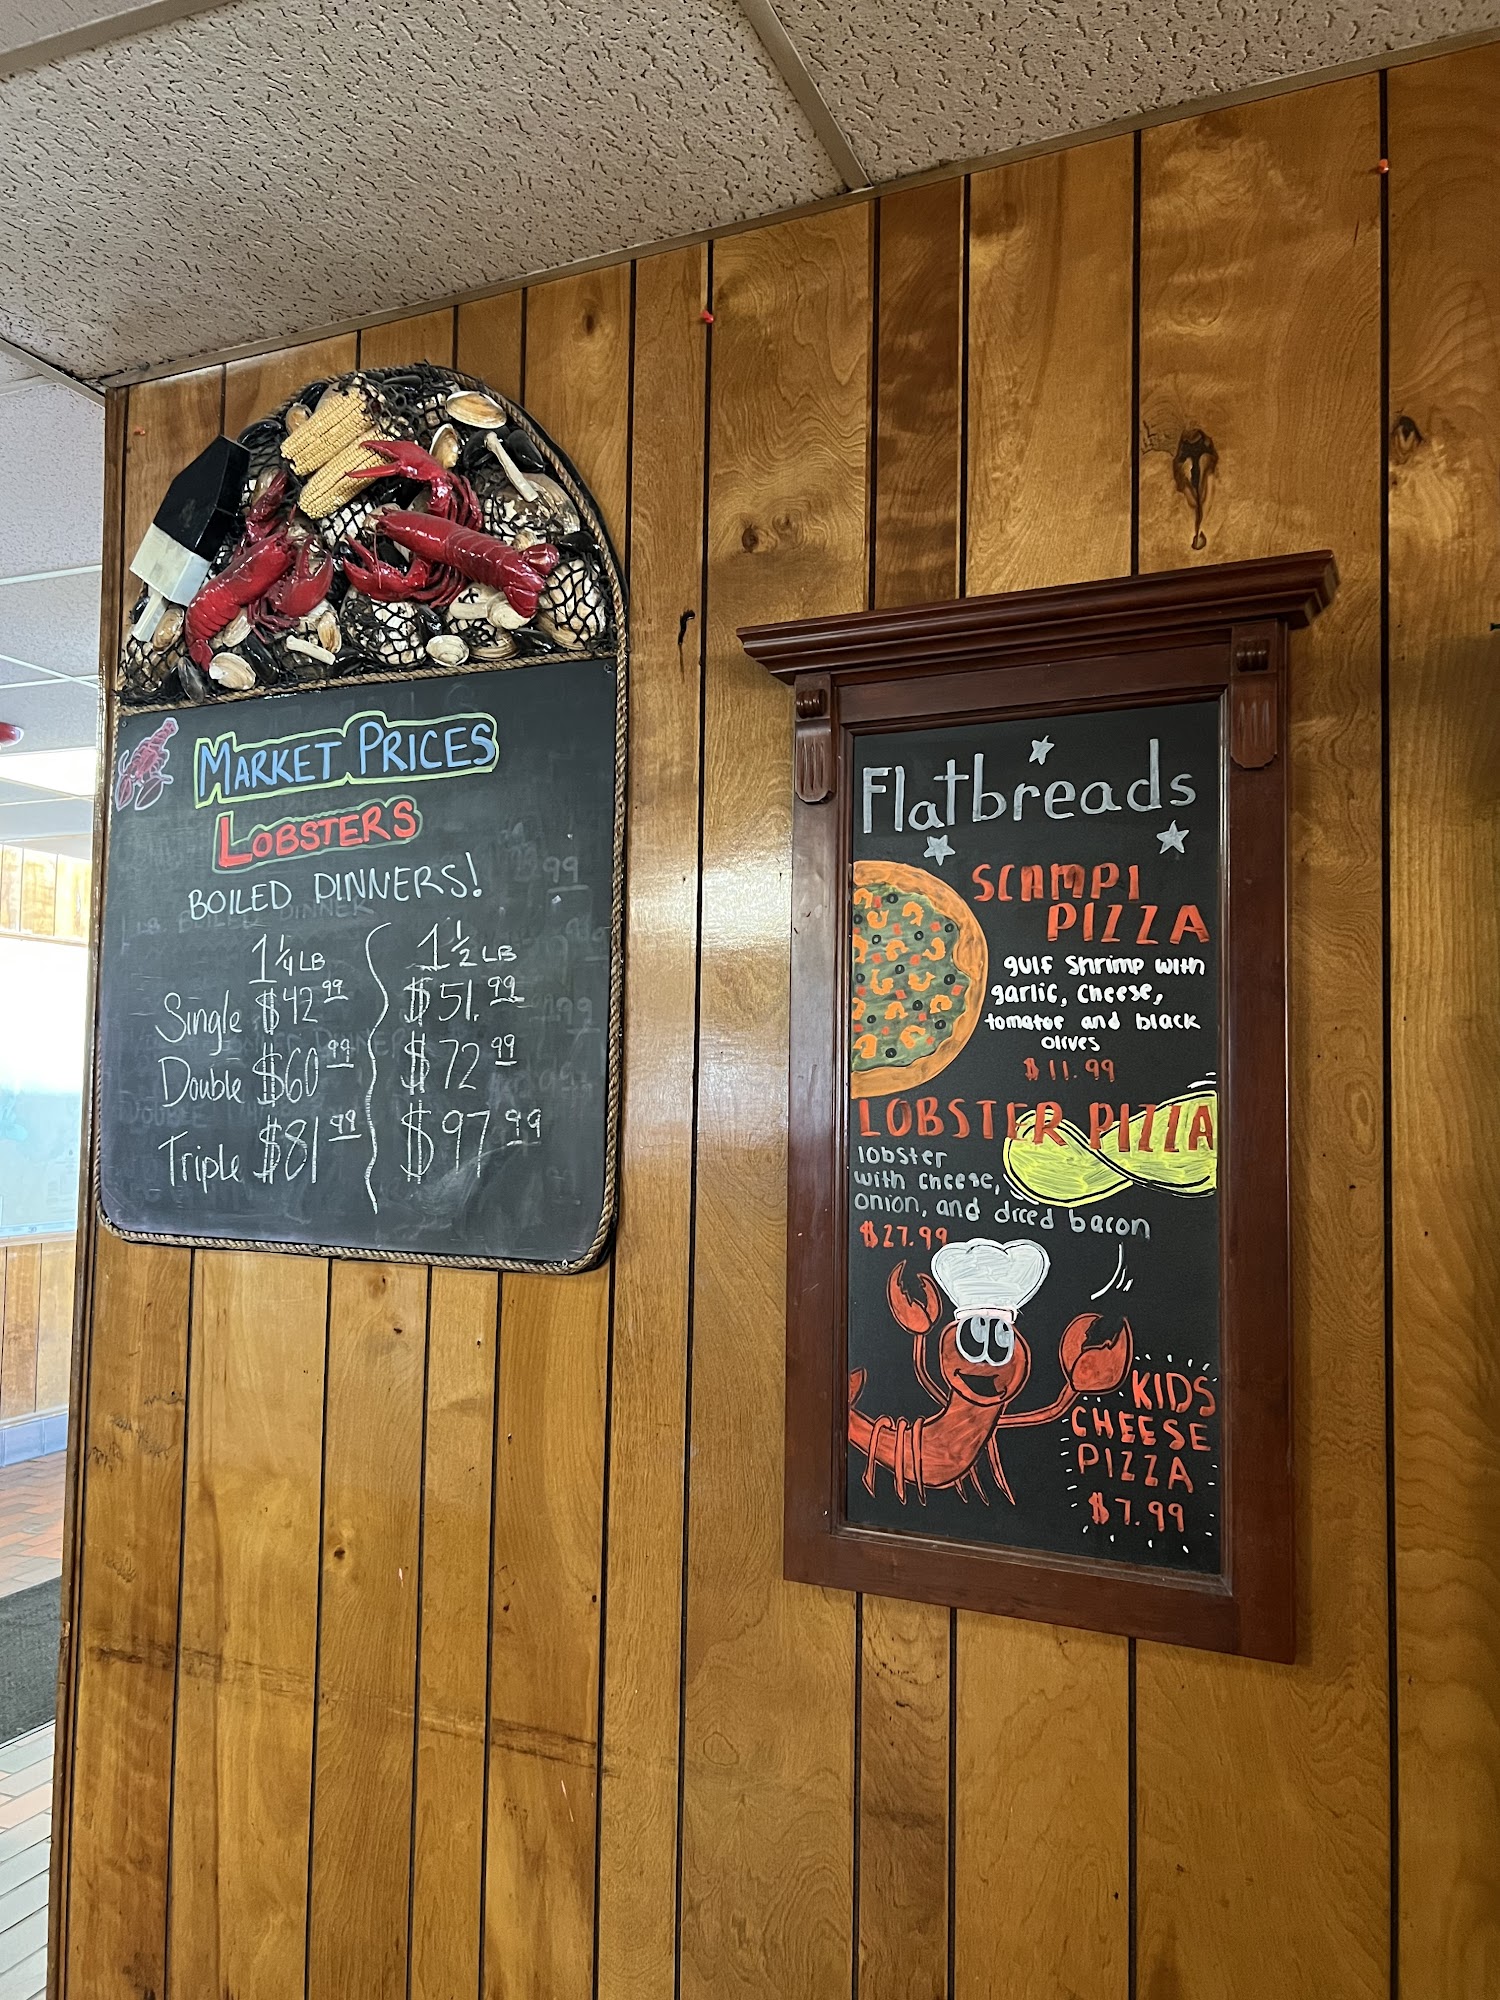 MARKET PRICES
LOBSTERS
BOILED DINNERS!
1 1/4 LB 1 1/2 LB
Single $42 99 $51. 99
Double $60 99 $72 99
Triple $81 99 $97 99
Flatbreads
SCAMPI
PIZZA
gulf shrimp with
garlic, cheese,
tomatoe and black
olives
$11.99
LOBSTER PIZZA
lobster
with cheese,
onion, and diced bacon
$27.99
KIDS
CHEESE
PIZZA
$7.99